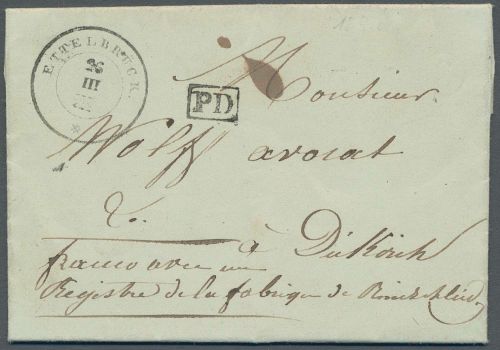 ETTELBRUCK.
26
III
PD
Monsieur
Wolff avocat
à Dikirch
franco avec un
Registre de la fabrique de